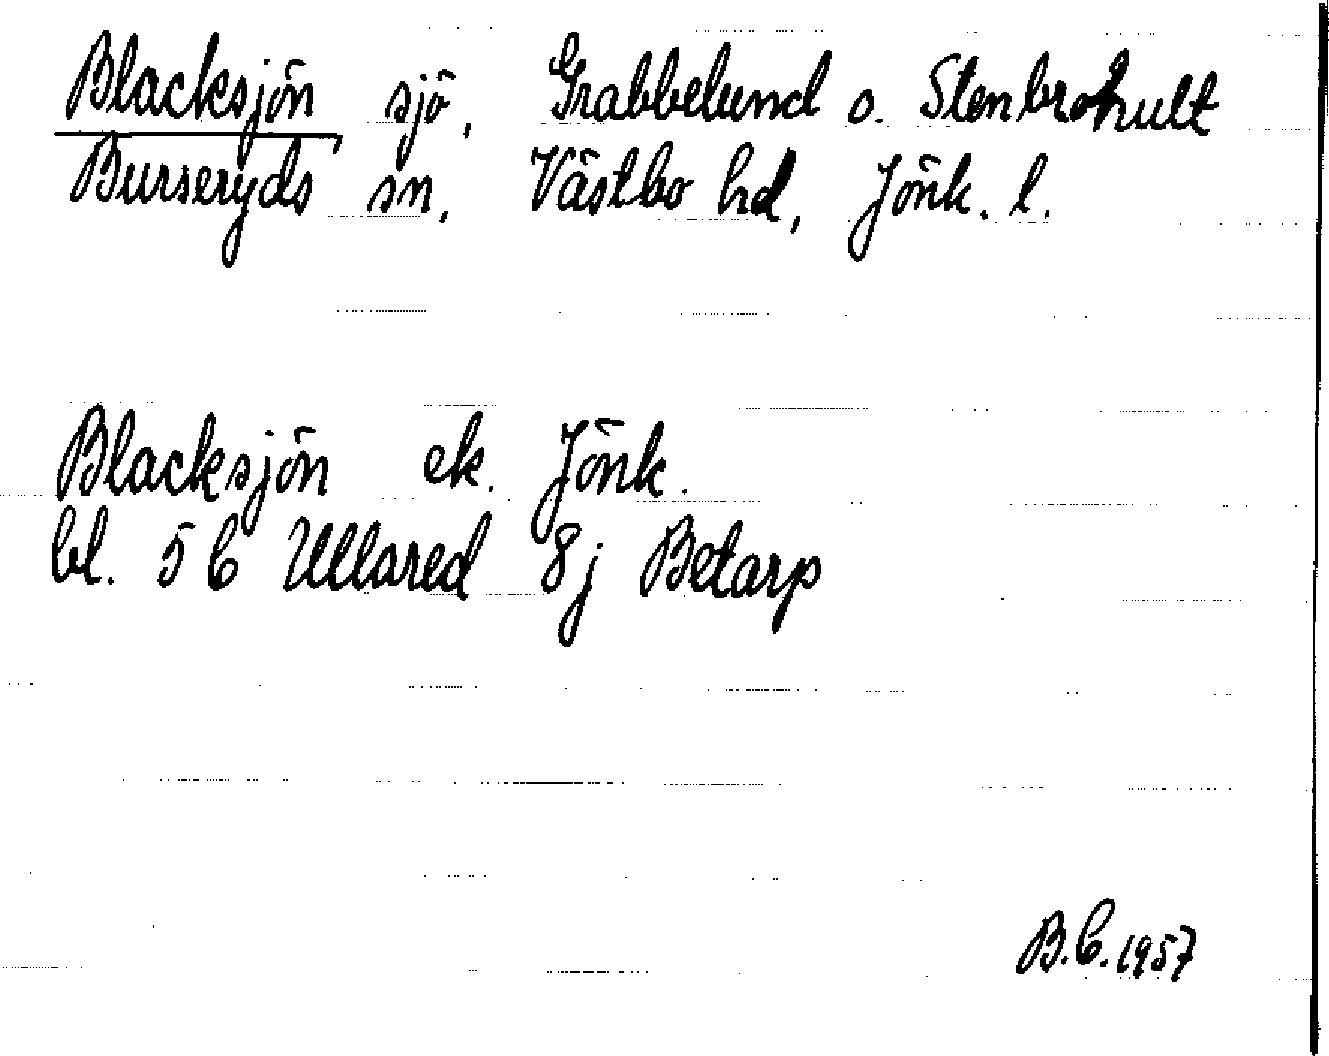 Blacksjön sjö, Grabbelund o. Stenbrohult
Burseryds sn, Västbo hd, Jönk. l.
Blacksjön ek. Jönk.
bl. 5 C Ullared 8j Betarp
B.C. 1957